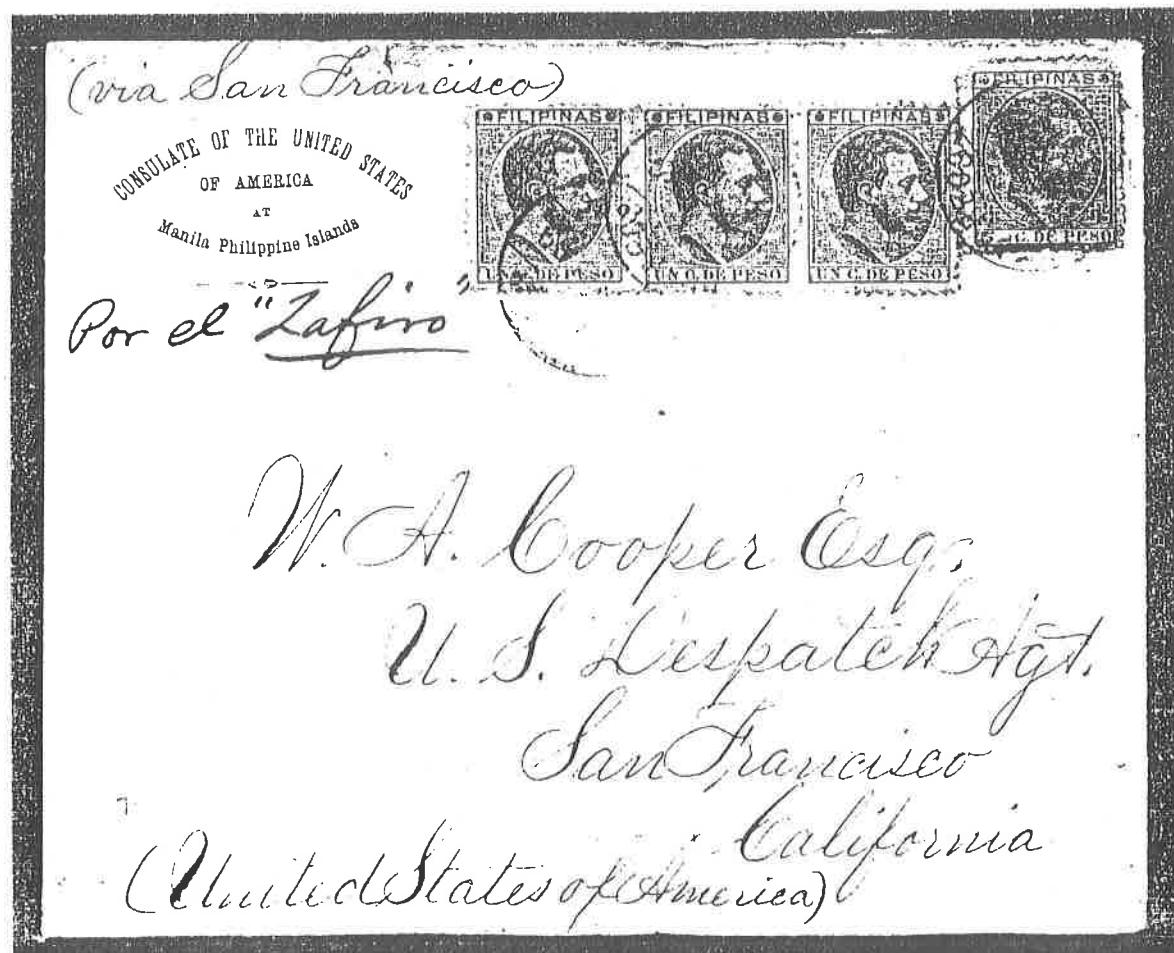 (via San Francisco)
CONSULATE OF THE UNITED STATES
OF AMERICA
AT
Manila Philippine Islands
Por el "Zafiro"
FILIPINAS
UN C. DE PESO
FILIPINAS
UN C. DE PESO
FILIPINAS
UN C. DE PESO
FILIPINAS
C. DE PESO
W. A. Cooper Esq.
U. S. Despatch Agt.
San Francisco
California
(United States of America)